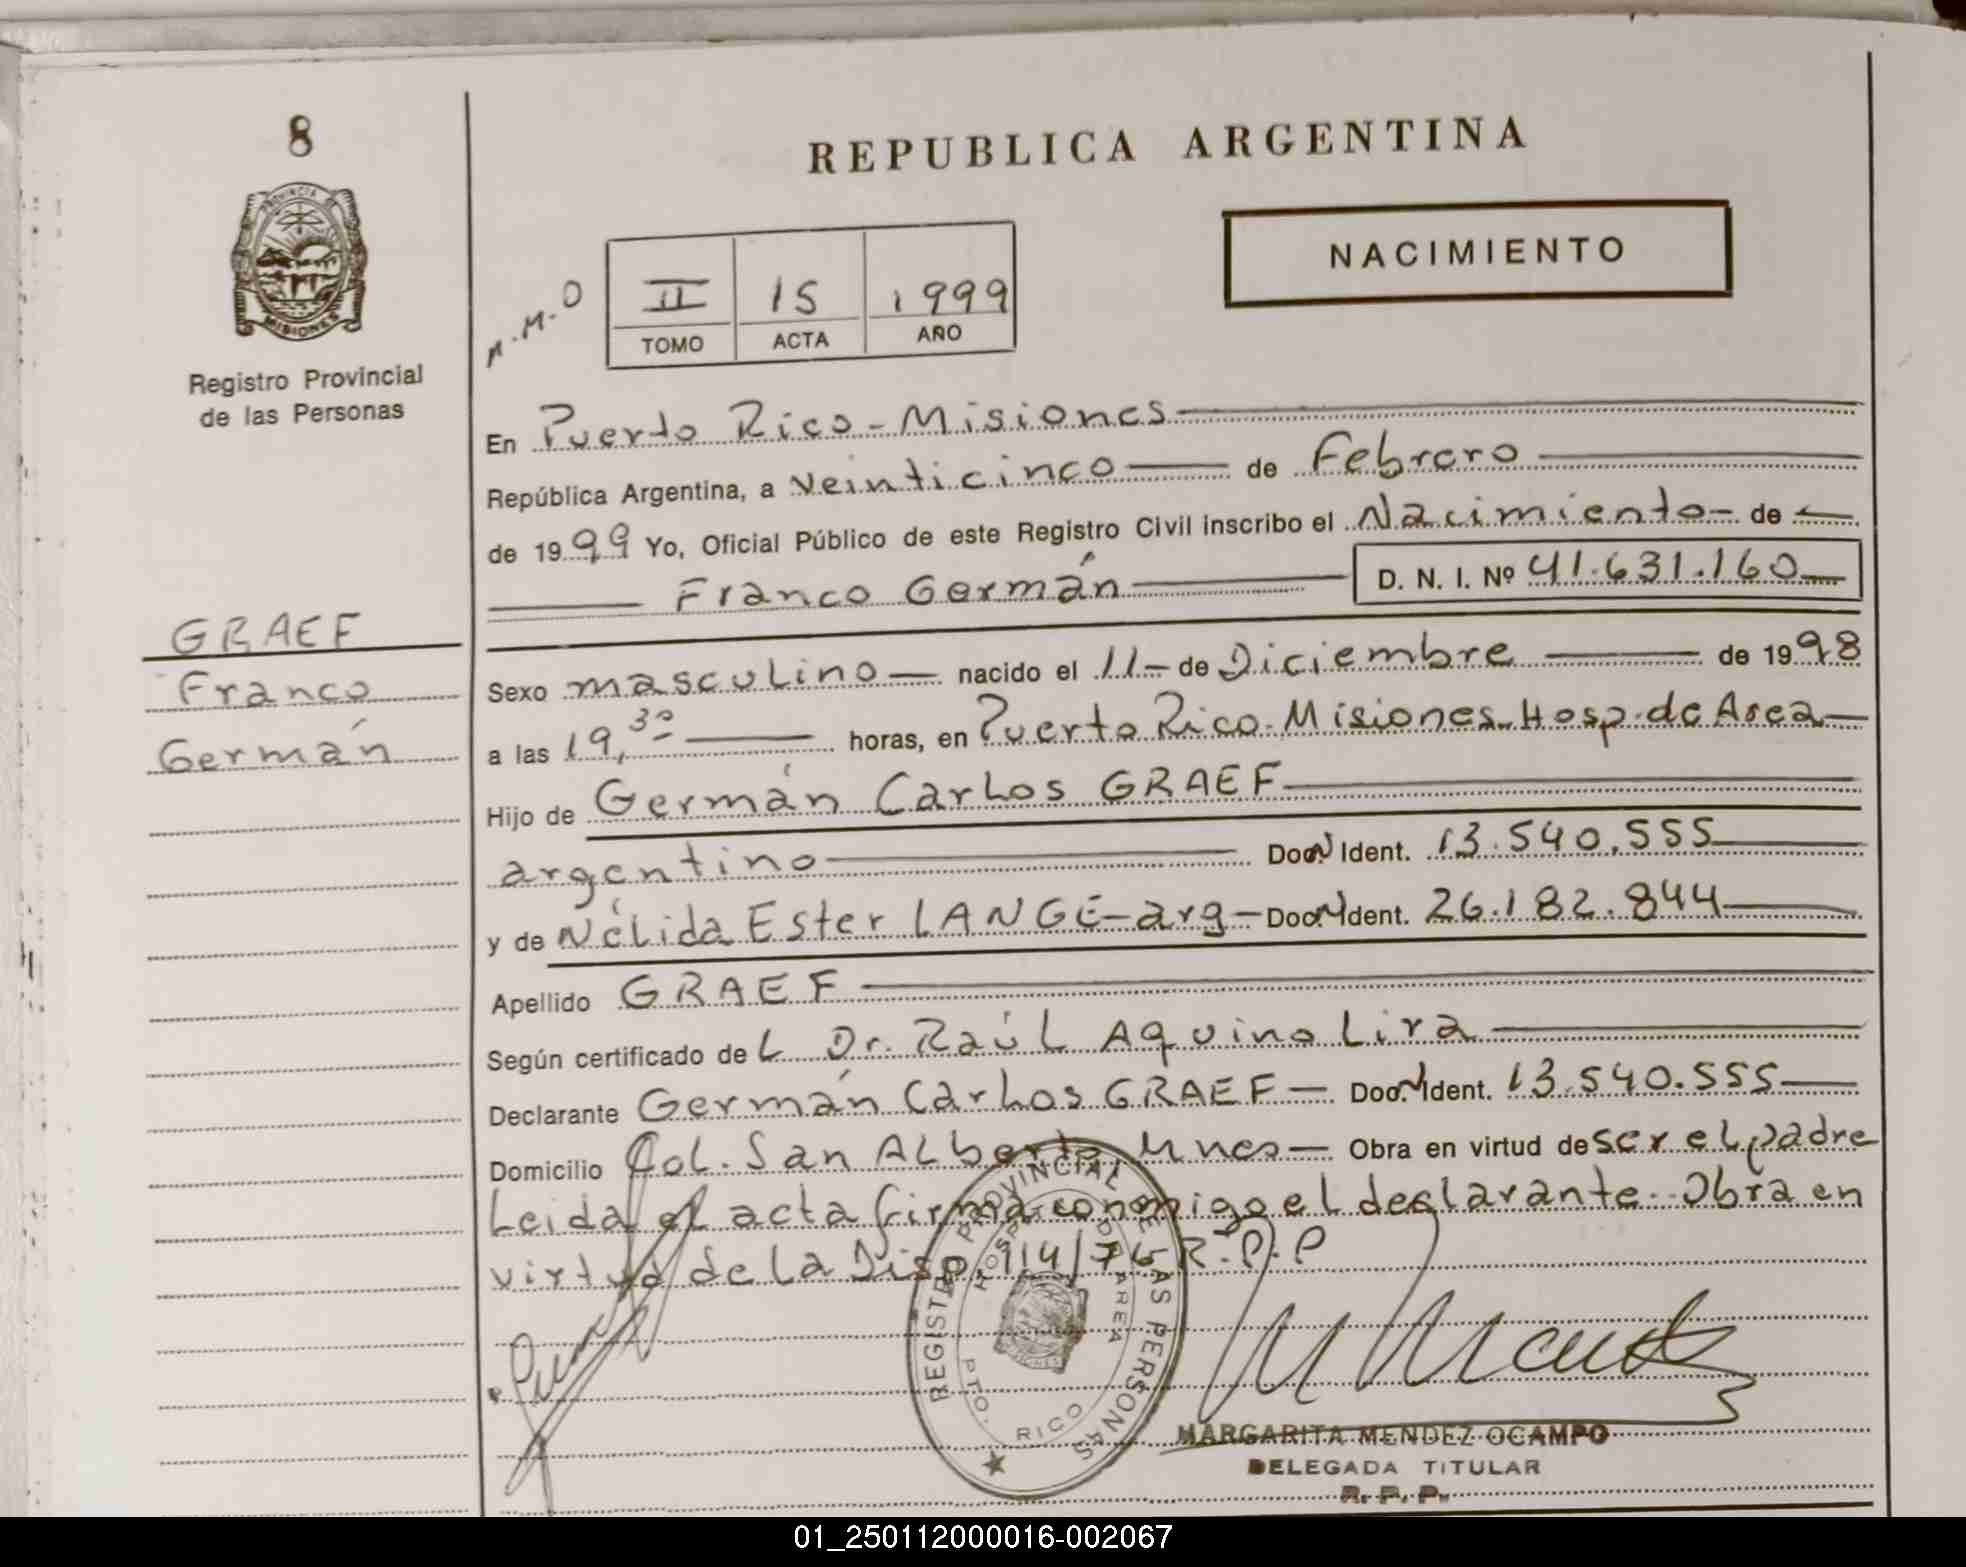 8
REPUBLICA ARGENTINA
PROVINCIA DE
MISIONES
Registro Provincial
de las Personas
NACIMIENTO
M.M.O
II 15 1999
TOMO ACTA AÑO
En Puerto Rico - Misiones
República Argentina, a veinticinco de Febrero
de 1999 Yo, Oficial Público de este Registro Civil inscribo el Nacimiento de
Franco Germán D. N. I. Nº 41.631.160
GRAEF
Franco
Germán
Sexo masculino nacido el 11 de Diciembre de 1998
a las 19,30 horas, en Puerto Rico. Misiones. Hosp. de Area
Hijo de Germán Carlos GRAEF
argentino Doc. N Ident. 13.540.555
y de Nélida Ester LANGE - arg - Doc. N Ident. 26.182.844
Apellido GRAEF
Según certificado del Dr. Raúl Aquino Lira
Declarante Germán Carlos GRAEF Doc. N Ident. 13.540.555
Domicilio Col. San Alberto Mnes Obra en virtud de ser el padre
Leida el acta firma conmigo el declarante. Obra en
virtud de la Disp. 914/76 R.P.P
REGISTRO PROVINCIAL DE LAS PERSONAS
HOSP. DE AREA
PTO. RICO
MARGARITA MENDEZ OCAMPO
DELEGADA TITULAR
R. P. P.
01_250112000016-002067